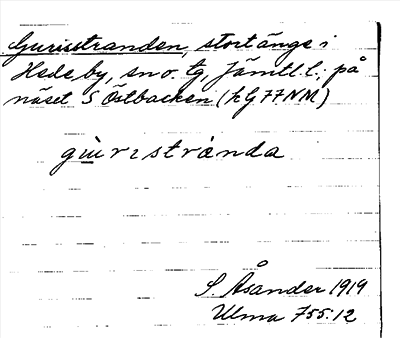 Gurisstranden, stort änge i
Hede by, sn o. tg, Jämtl. l.; på
näset S Östbacken (h G 77 NM)
gùrɪstrànda
S. Åsander 1919
Ulma 755:12